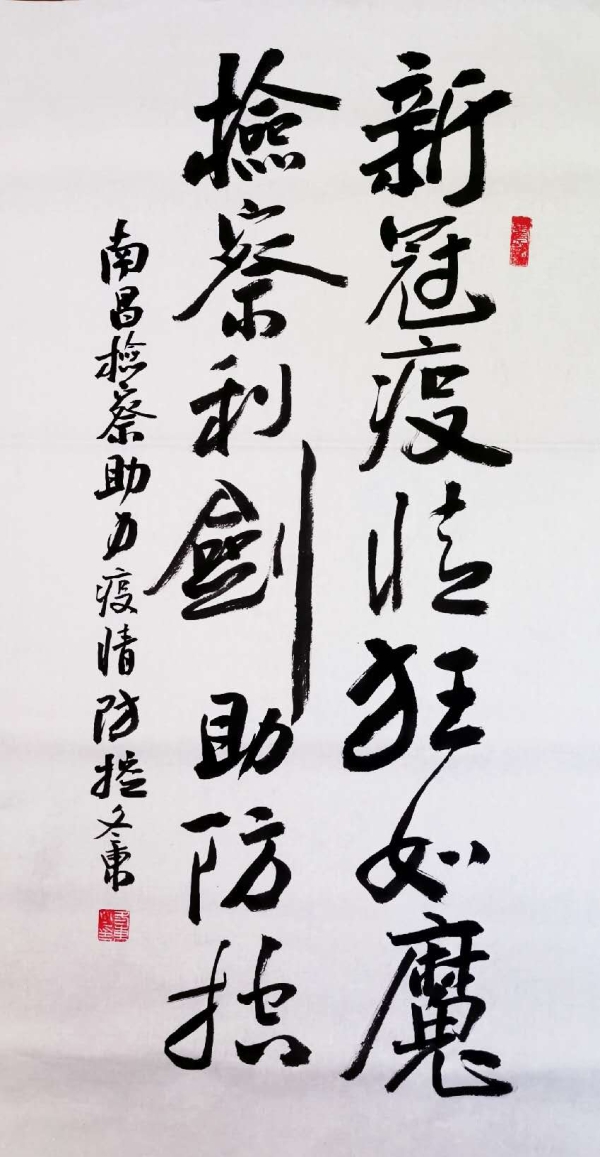 新冠疫情狂如魔
檢察利劍助防控
南昌檢察助力疫情防控 冬東